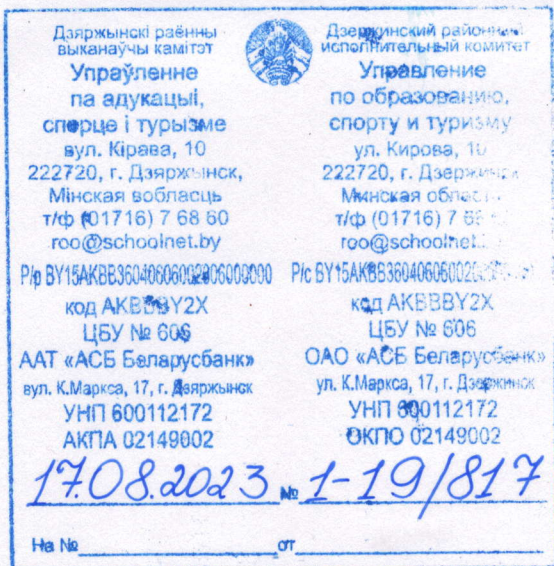 Дзяржынскі раённы
выканаўчы камітэт
Упраўленне
па адукацыі,
спорце і турызме
вул. Кірава, 10
222720, г. Дзяржынск,
Мінская вобласць
т/ф (01716) 7 68 60
roo@schoolnet.by
код AKBBBY2X
ЦБУ № 606
ААТ «АСБ Беларусбанк»
вул. К.Маркса, 17, г. Дзяржынск
УНП 600112172
АКПА 02149002
Дзержинский районный
исполнительный комитет
Управление
по образованию,
спорту и туризму
ул. Кирова, 10
222720, г. Дзержинск
Минская
т/ф (01716) 7
код AKBBBY2X
ЦБУ № 606
ОАО «АСБ Беларусбанк»
ул. К.Маркса, 17, г. Дзержинск
УНП 600112172
ОКПО 02149002
17.08.2023 № 1-19/817
На № от